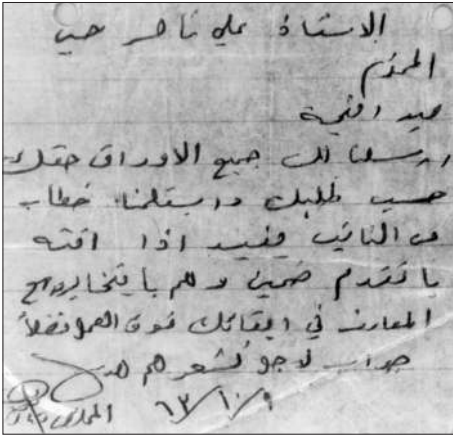 الاستاذ علي ناصر حسن
المحترم
بعد التحية
ارسلنا لك جميع الاوراق حقك
حسب طلبك واستلمنا خطاب
من النائب يفيد اذا انته
با تقدم ضمين وهم با يتخابروا مع
المعارف في ابقائك فوق العمل فضلاً
جواب لاجل نشعرهم
٩/١٠/٦٣